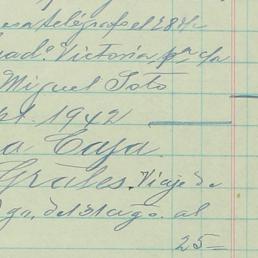 telégraf el 28 H-
Victoria pª da
Miguel Soto
pt. 1942
a Caja
Grales. Viaje de
gr. del 31 ago. al
25=